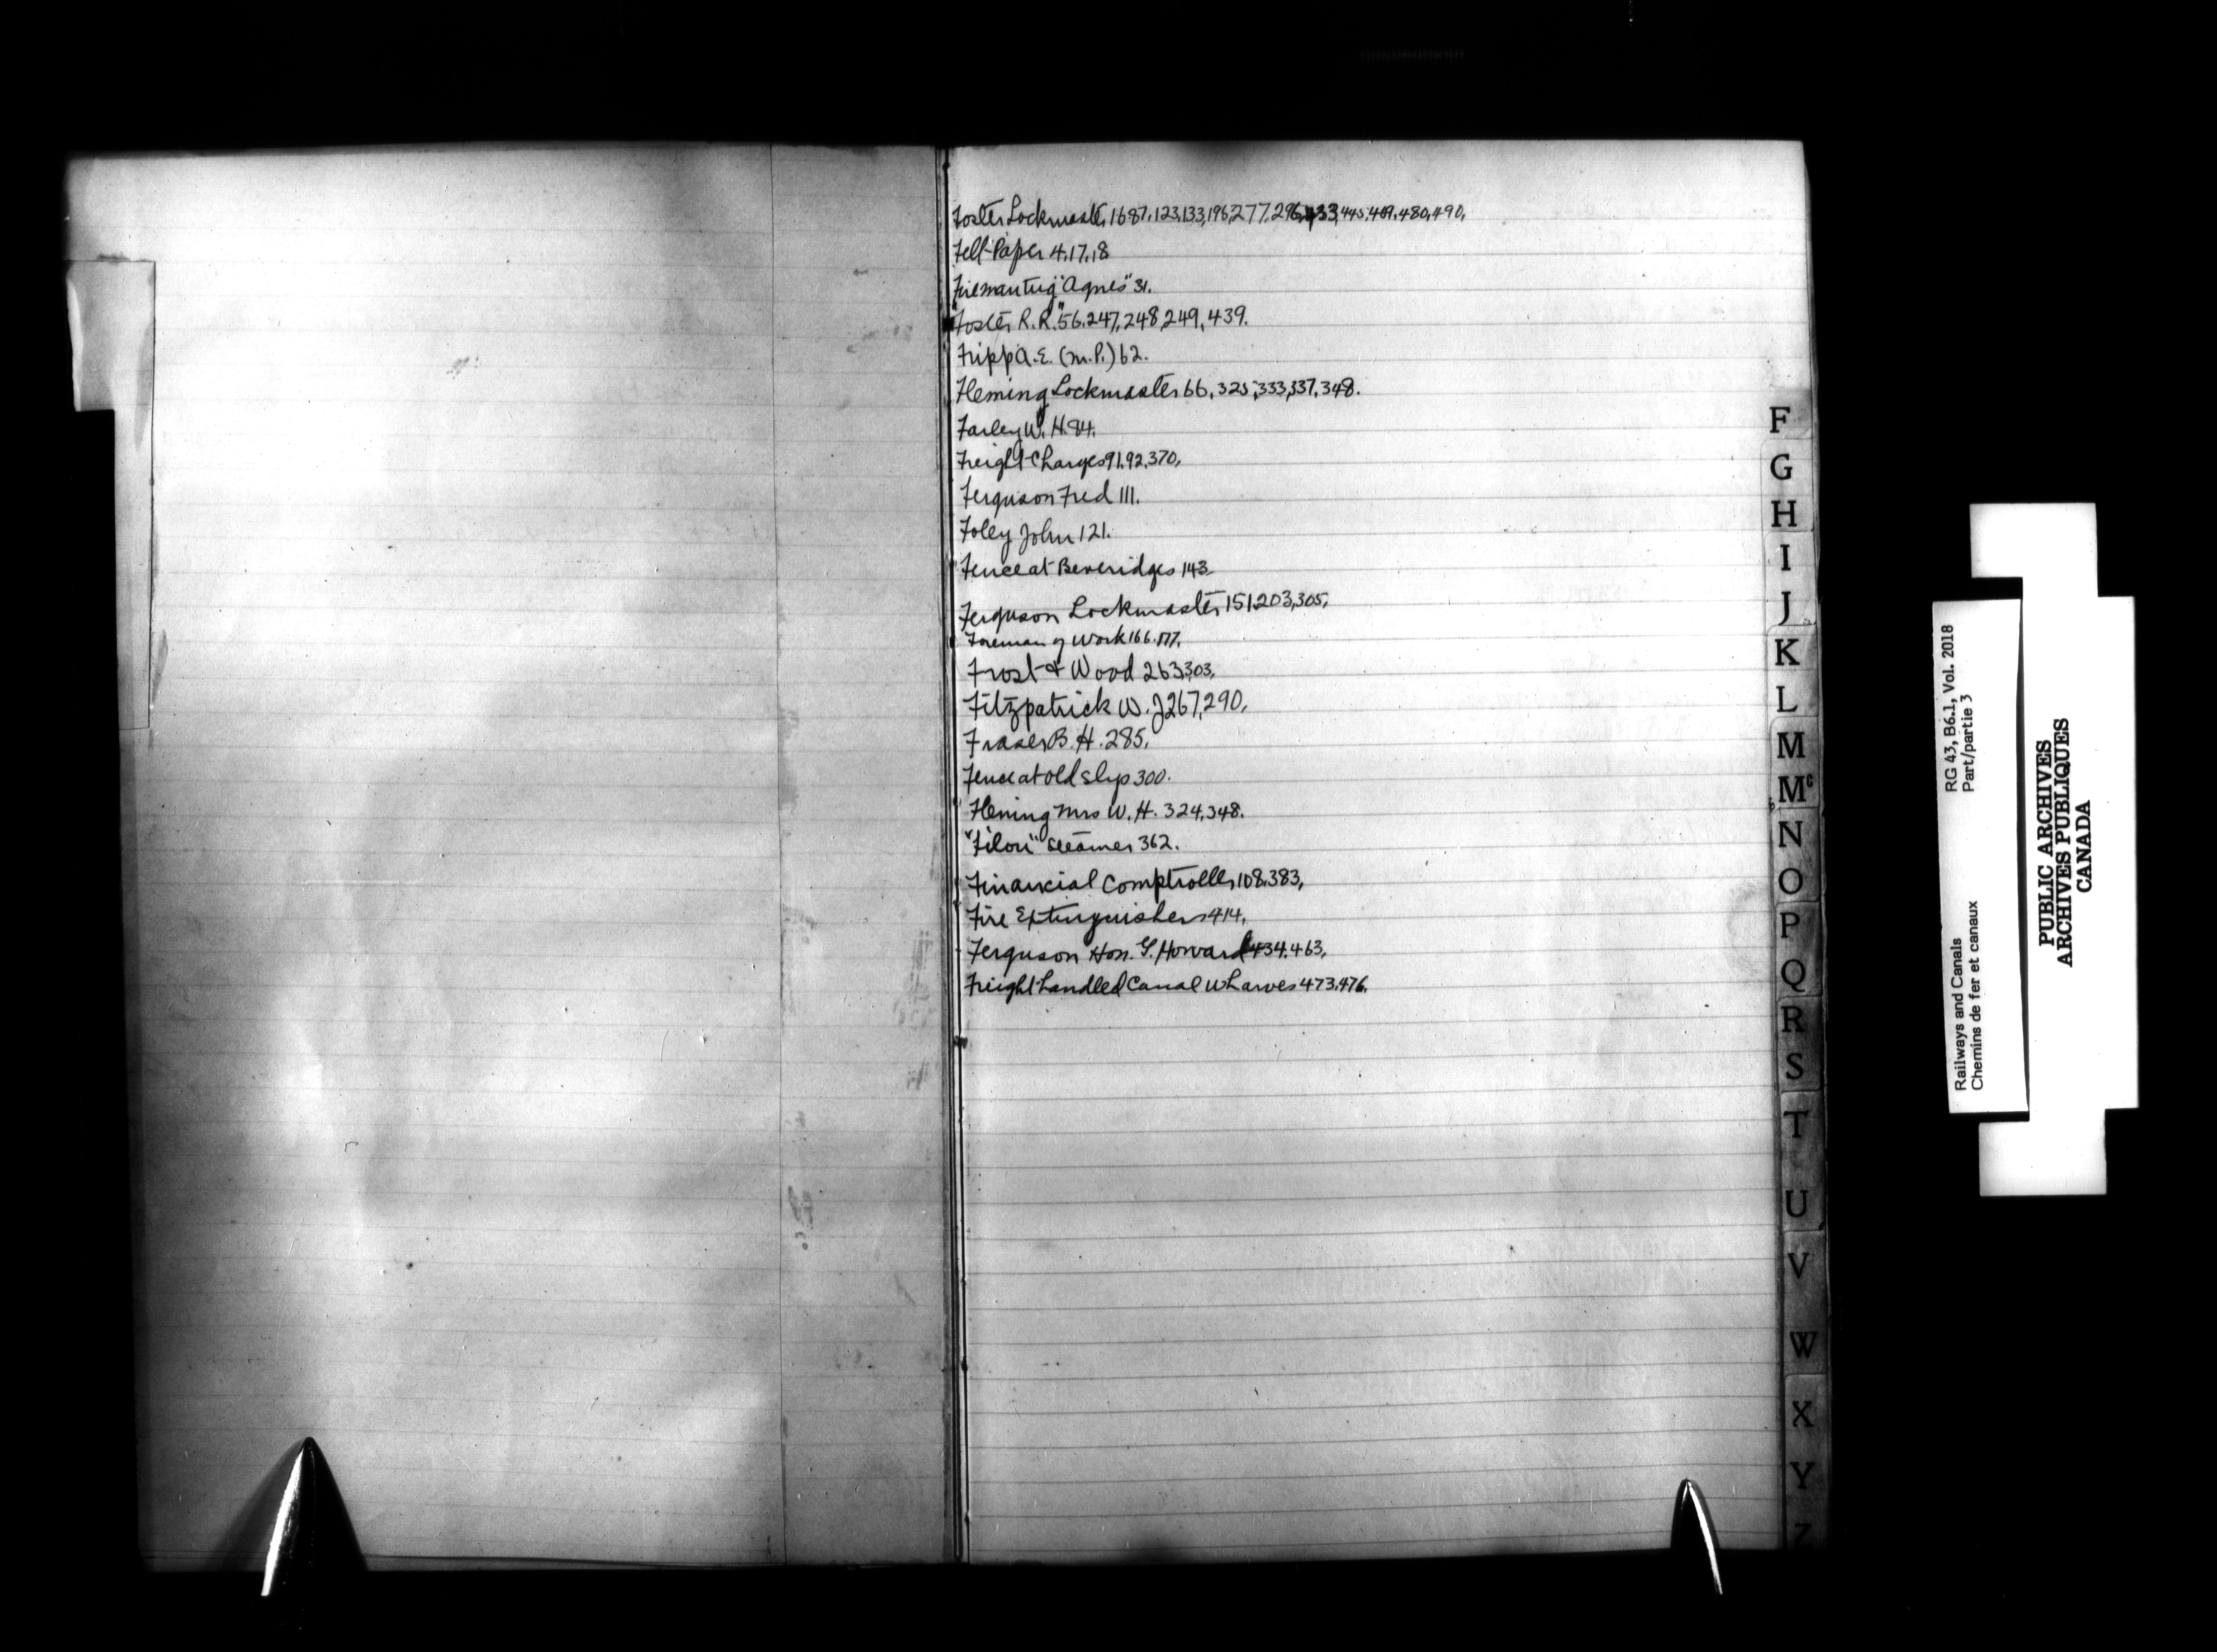 Foster Lockmaster 1687.123,133,196,277,296,433,445,469,480,490,
Felt Paper 4,17,18
Fireman tug "Agnes" 31.
"Foster R.R." 56.247,248,249,439.
Fripp A.E. (M.P.) 62.
Fleming Lockmaster 66,325,333,337,348.
Farley W. H. 84.
Freight Charges 91.92,370,
Ferguson Fred 111.
Foley John 121.
Fence at Beveridges 143
Ferguson Lockmaster 151,203,305,
Foreman of Work 166.177,
Frost & Wood 263,303,
Fitzpatrick W. J 267,290,
Fraser B. H. 285,
Fence at old slip 300.
Fleming Mrs W. H. 324,348.
" " Steamer 362.
Financial Comptroller 108,383,
Fire Extinguishers 414,
Ferguson Hon. G. Howard 434.463,
Freight handled Canal Wharves 473,476.
F
G
H
I
J
K
L
M
Mc
N
O
P
Q
R
S
T
U
V
W
X
Y
Z
RG 43, B6.1, Vol. 2018
Part/partie 3
Railways and Canals
Chemins de fer et canaux
PUBLIC ARCHIVES
ARCHIVES PUBLIQUES
CANADA